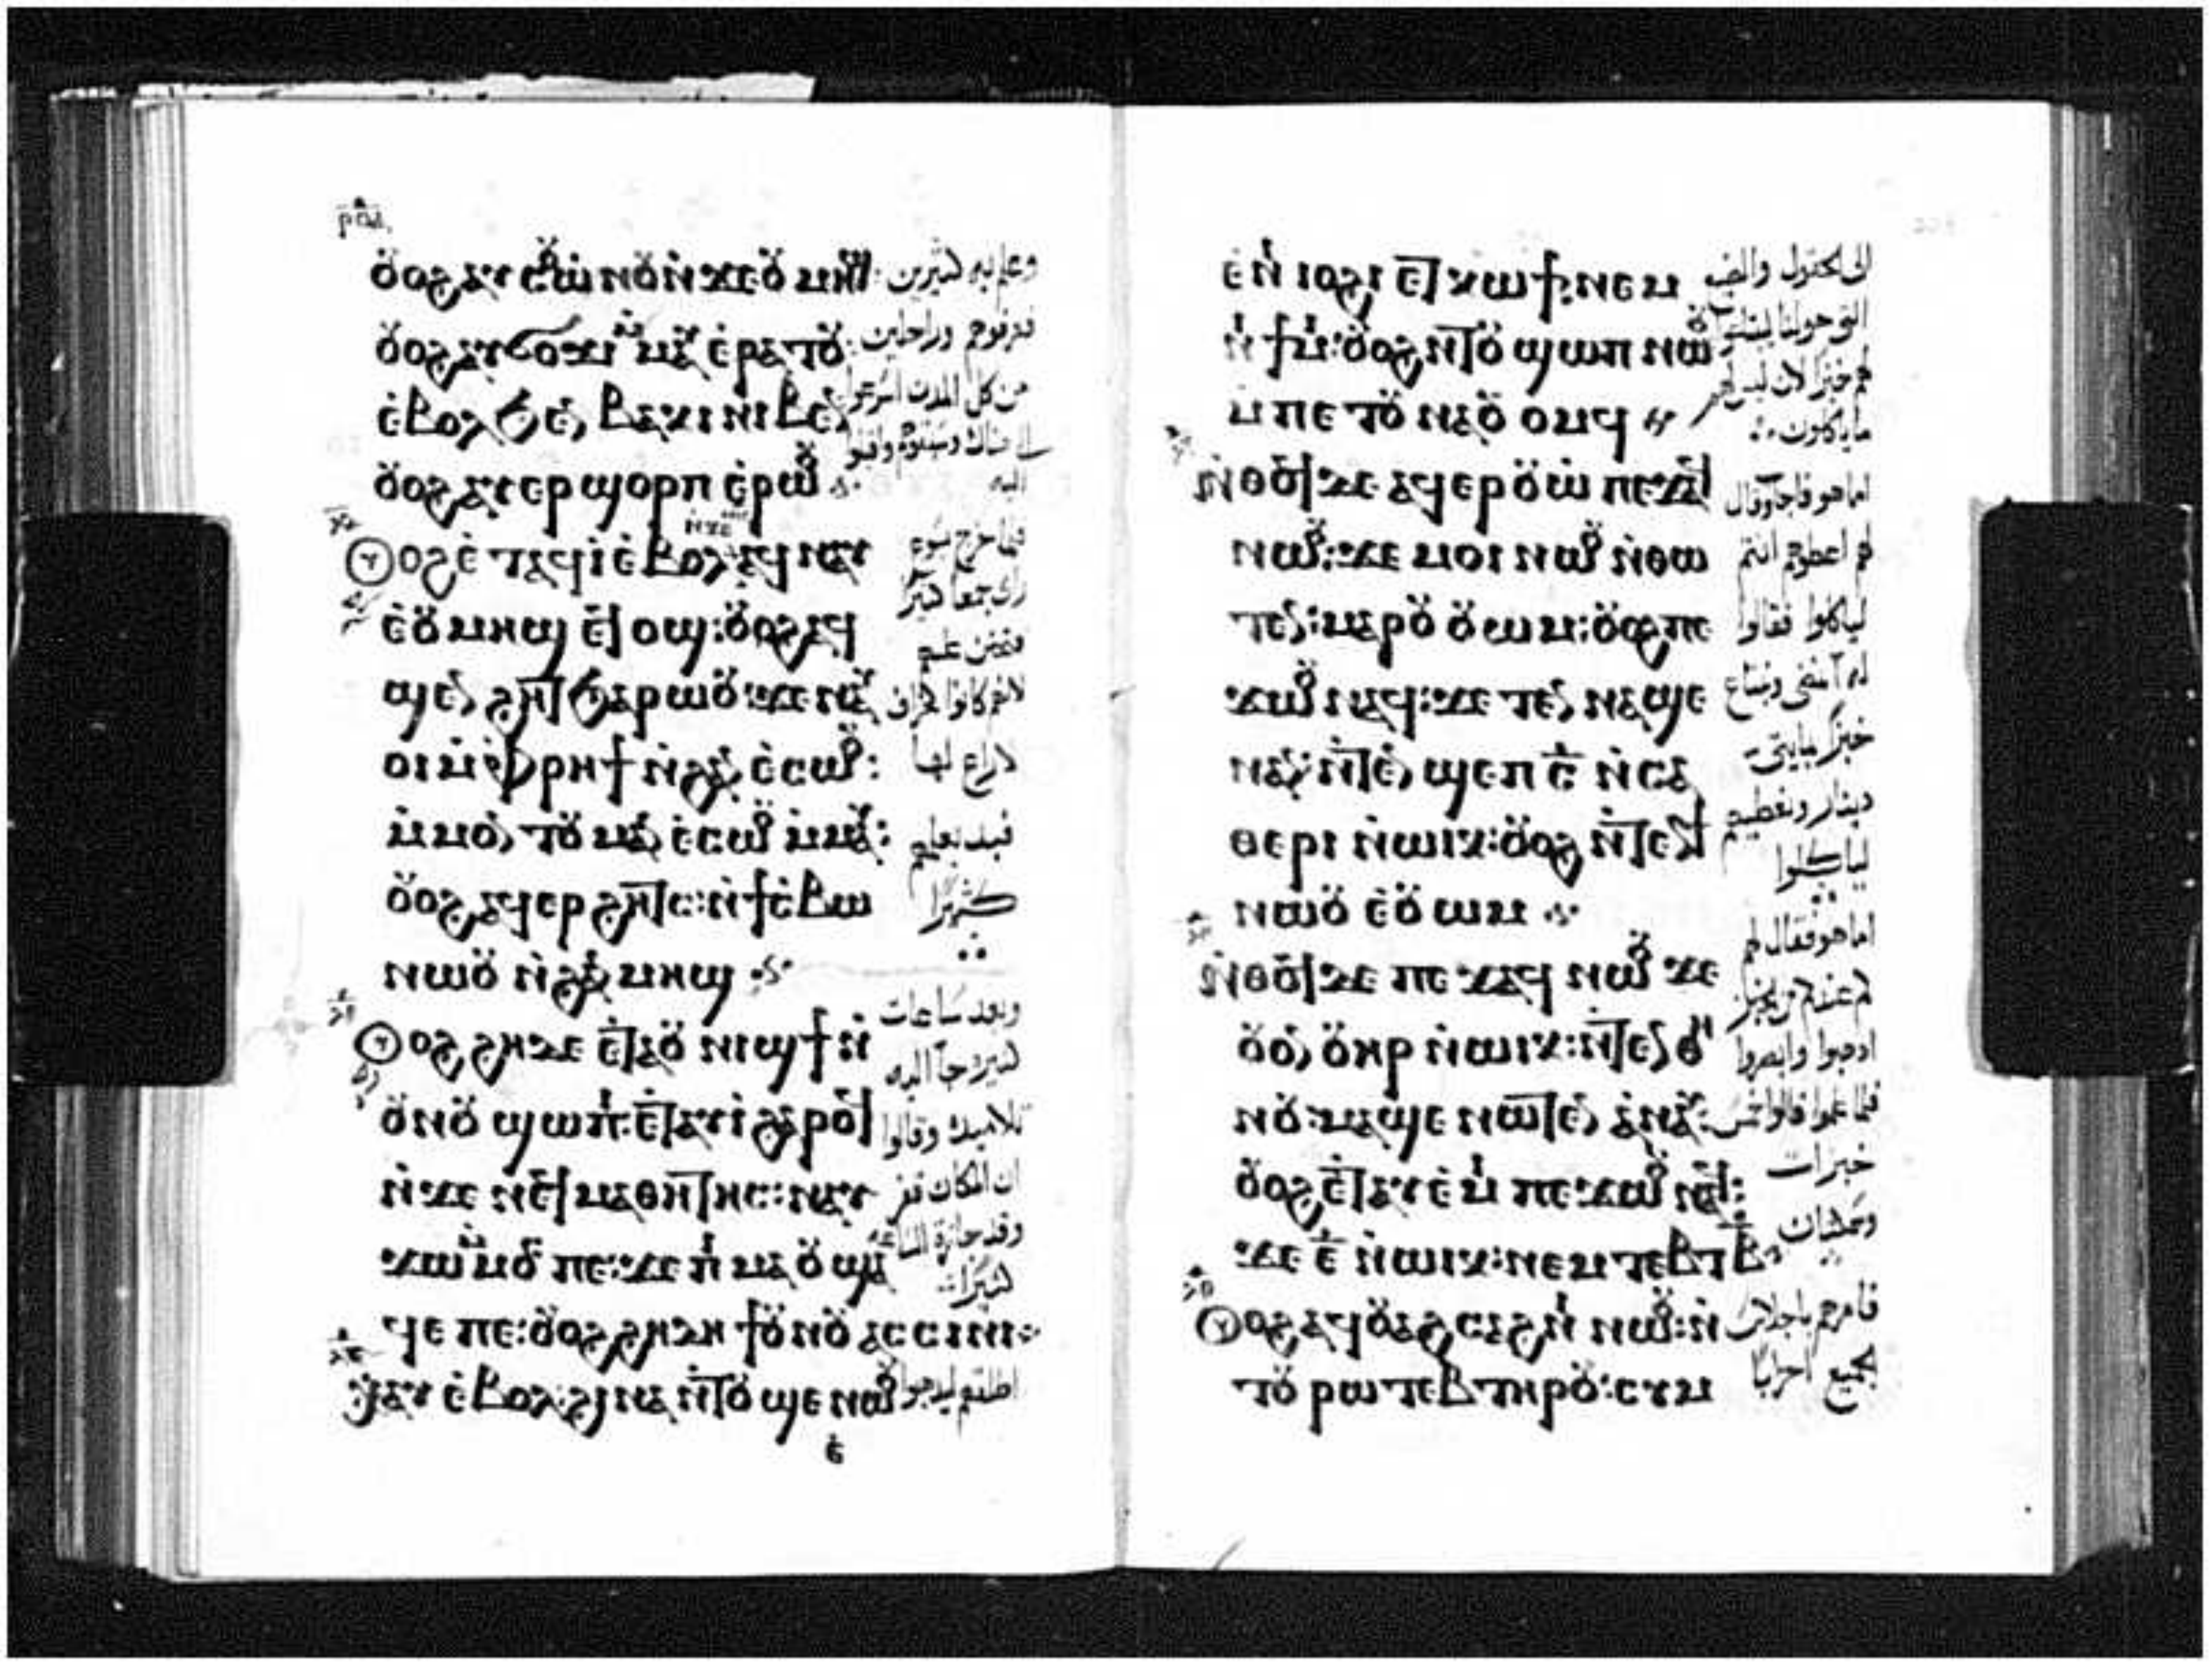 ⲣⲟⲁ
ⲟ̈ⲟϩ ⲁⲩⲥⲟ̈ⲱⲛⲟ̈ ⲛ̀ϫⲉ ⲟ̈ⲙⲏϣ
ⲟ̈ⲟϩ ⲁⲩϭⲟϫⲓ ⲙⲙⲁⲩ ⲉ̀ⲣⲁⲧⲟ̈
ⲉ̀ⲃⲟⲗ ϧⲉⲛ ⲃⲁⲕⲓ ⲛⲓⲃⲉⲛ
ⲟ̈ⲟϩ ⲁⲩⲉⲣϣⲟⲣⲡ ⲉ̀ⲣⲱⲟ̈
ⲟ̈ⲟϩ ⲉ̀ⲧⲁϥⲓ̀ ⲉ̀ⲃⲟⲗ ⲁϥⲛⲁⲩ
ⲉ̀ⲟ̈ⲙⲏϣ ⲉϥⲟϣ: ⲟ̈ⲟϩ ⲁϥ
ϣⲉⲛϩⲏϥ ϧⲁⲣⲱⲟ̈: ϫⲉ ⲛⲁⲩ
ⲟⲓ ⲙ̀ⲫⲣⲏϯ ⲛ̀ϩⲁⲛⲉ̀ⲥⲱⲟ̈:
ⲙ̀ⲙⲟⲛⲧⲟ̈ ⲙⲁⲛⲉ̀ⲥⲱⲟ̈ ⲙ̀ⲙⲁⲩ:
ⲟ̈ⲟϩ ⲁϥⲉⲣϩⲏⲧⲥ: ⲛ̀ϯⲥ̀ⲃⲱ
ⲛⲱⲟ̈ ⲛ̀ϩⲁⲛⲙⲏϣ
ⲟ̈ⲟϩ ϩⲏⲇⲉ ⲉ̀ⲧⲁⲟ̈ⲛⲓϣϯ ⲛ̀
ⲟ̈ⲛⲟ̈ ϣⲱⲡⲓ: ⲉ̀ⲧⲁⲩⲓ̀ ϩⲁⲣⲟϥ
ⲛ̀ϫⲉ ⲛⲉϥⲙⲁⲑⲏⲧⲏⲥ: ⲛⲁⲩ
ϫⲱ ⲙⲙⲟⲥ ⲡⲉ: ϫⲉ ⲡⲓⲙⲁ ⲟ̈ϣⲁ
ϥⲉ ⲡⲉ: ⲟ̈ⲟϩ ϩⲏⲇⲏ ϯⲟ̈ⲛⲟ̈ ⲁⲥⲥⲓⲛⲓ
ⲭⲁⲩ ⲉ̀ⲃⲟⲗ: ϩⲓⲛⲁ ⲛ̀ⲧⲟ̈ϣⲉ ⲛⲱⲟ̈
ⲉ̀
وعلم به كثيرين
فعرفوهم وراجلين
من كل المدن اسرعوا
الى هناك وسبقوهم واتوا
اليه
فلما خرج يسوع
راى جمعا كثيرا
فتحنن عليهم
لانهم كانوا كخراف
لا راع لها
فبدا يعلمهم
كثيرا
وبعد ساعات
كثيره جا اليه
تلاميذه وقالوا
ان المكان قفر
وقد جازة الساعه
كثيرا
اطلقهم ليذهبوا
ⲉ̀ⲛⲓⲓⲟϩⲓ ⲉⲧⲕⲱϯ: ⲛⲉⲙ
ⲛⲓϯⲙⲓ: ⲟ̈ⲟϩ ⲛⲧⲟ̈ϣⲱⲡ ⲛⲱⲟ̈
ⲙⲡⲉⲧⲟ̈ⲛⲁⲟ̈ⲟⲙϥ
ⲛ̀ⲑⲟϥ ⲇⲉ ⲁϥⲉⲣⲟ̈ⲱ̀ ⲡⲉϫⲁϥ
ⲛⲱⲟ̈: ϫⲉ ⲙⲟⲓ ⲛⲱⲟ̈ ⲛ̀ⲑⲱ
ⲧⲉⲛ: ⲙⲁⲣⲟ̈ⲟ̈ⲱⲙ: ⲟ̈ⲟϩ ⲡⲉ
ϫⲱⲟ̈ ⲛⲁϥ: ϫⲉ ⲧⲉⲛⲛⲁϣⲉ
ⲛⲁⲛ: ⲛ̀ⲧⲉⲛϣⲉⲡ ⲥ̅ ⲛ̀ⲥⲁ
ⲑⲉⲣⲓ ⲛ̀ⲱⲓⲕ: ⲟ̈ⲟϩ ⲛ̀ⲧⲉⲛϯ
ⲛⲱⲟ̈ ⲉ̀ⲟ̈ⲱⲙ
ⲛ̀ⲑⲟϥ ⲇⲉ ⲡⲉϫⲁϥ ⲛⲱⲟ̈ ϫⲉ
ⲟ̈ⲟⲛ ⲟ̈ⲏⲣ ⲛ̀ⲱⲓⲕ: ⲛ̀ⲧⲉⲛⲑⲏ
ⲛⲟ̈: ⲙⲁϣⲉ ⲛⲱⲧⲉⲛ ⲁ̀ⲛⲁⲩ:
ⲟ̈ⲟϩ ⲉ̀ⲧⲁⲩⲉ̀ⲙⲓ ⲡⲉϫⲱⲟ̈ ⲛⲁϥ:
ϫⲉ ⲉ̅ ⲛ̀ⲱⲓⲕ: ⲛⲉⲙ ⲧⲉⲃⲧ ⲃ̅
ⲟ̈ⲟϩ ⲁϥⲟ̈ⲁϩⲥⲁϩⲛⲓ ⲛⲱⲟ̈: ⲛ̀
ⲧⲟ̈ⲣⲱⲧⲉⲃ ⲧⲏⲣⲟ̈: ⲥⲩⲙ
الى الحقول والقرى
التى حولنا ليبتاعوا
لهم خبزا لان ليس لهم
ما ياكلون
اما هو فاجاب وقال
لهم اعطوهم انتم
لياكلوا فقالوا
له انمضى ونبتاع
خبزا بمايتى
دينار ونعطيهم
لياكلوا
اما هو فقال لهم
كم عندكم من الخبز
اذهبوا وابصروا
فلما علموا قالوا خمس
خبزات
وسمكتان
فامرهم باجلاس
الجميع احزابا